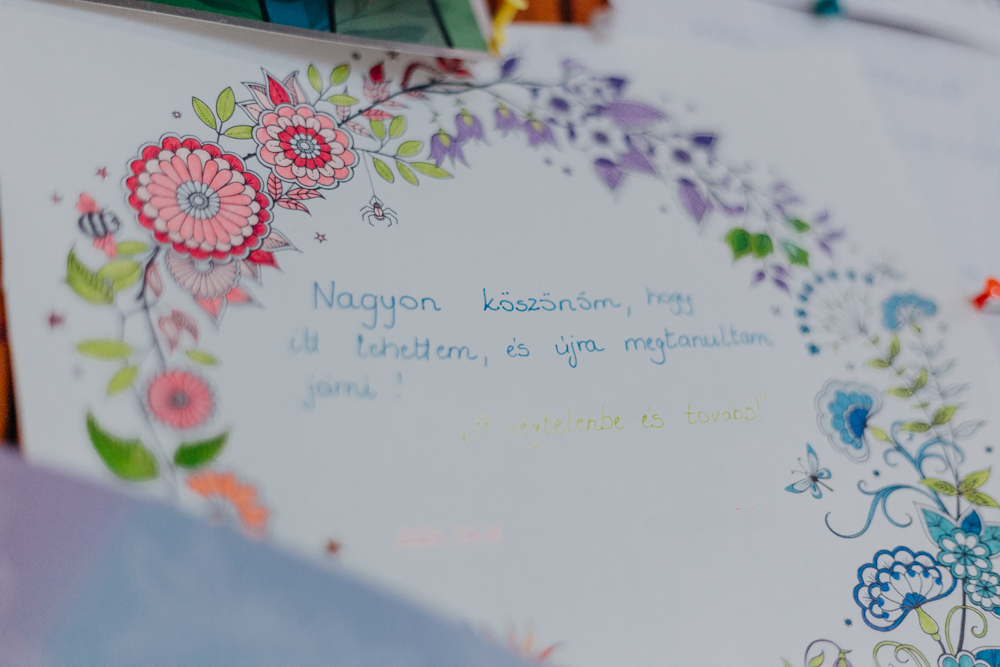 Nagyon köszönöm, hogy
itt lehettem, és újra megtanultam
járni!
végtelenbe és tovább!